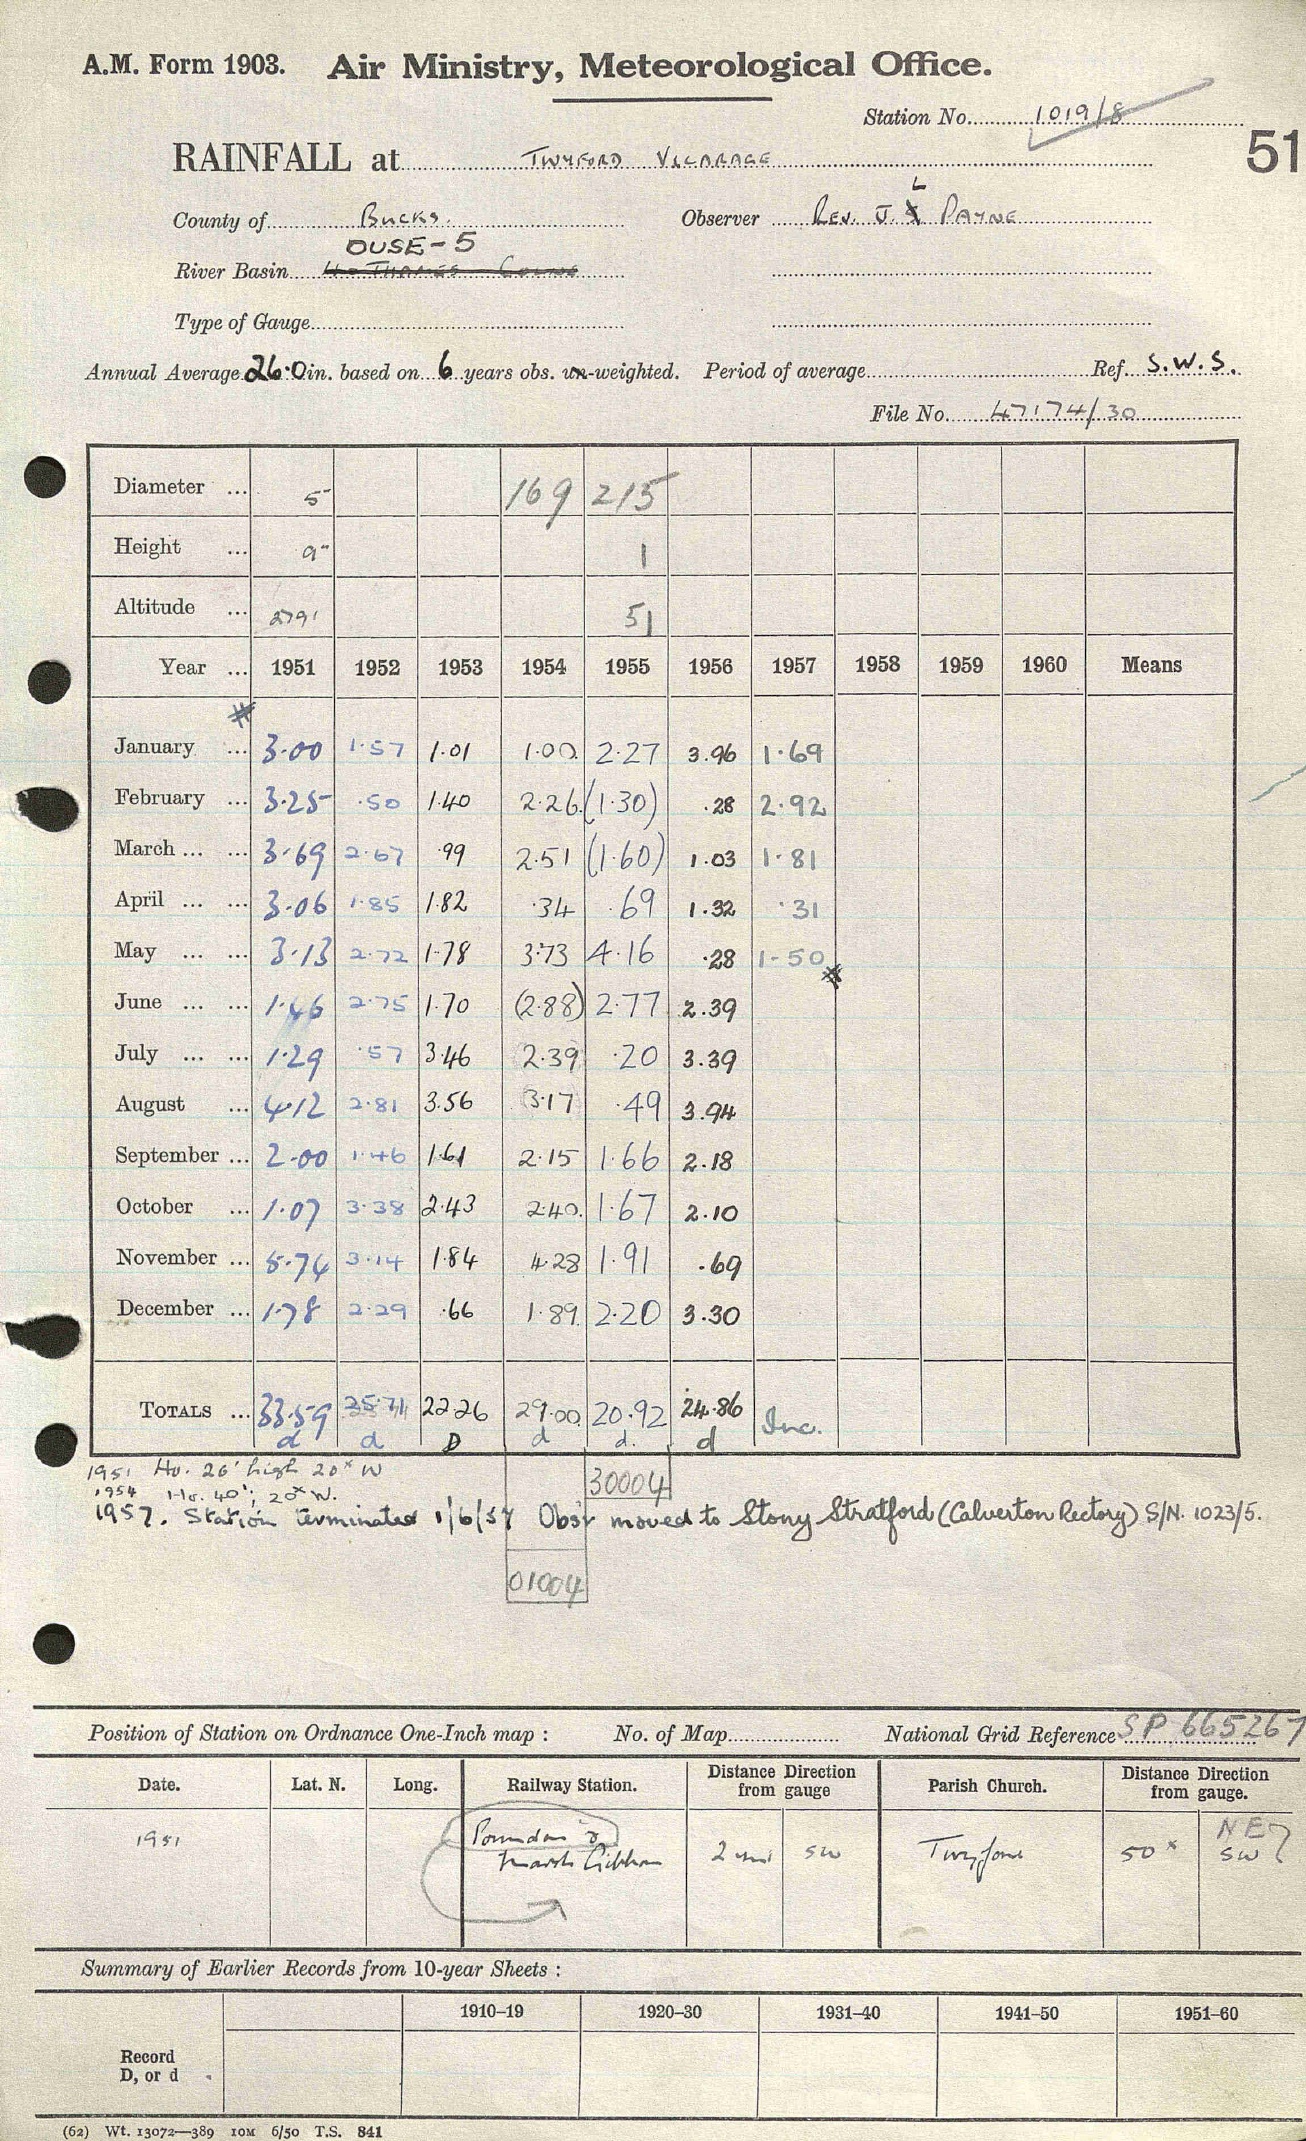 A.M. Form 1903. Air Ministry, Meteorological Office.
Station No. 1019/8
51
RAINFALL at TWYFORD VICARAGE
L
County of BUCKS. Observer REV. J. PAYNE
OUSE-5
River Basin THAMES - COLNE
Type of Gauge
Annual Average 26.0 in. based on 6 years obs. un-weighted. Period of average Ref. S.W.S.
File No. 47174/30
Diameter ... 5" 169 215
Height ... 9" 1
Altitude ... 279' 51
Year ... 1951 1952 1953 1954 1955 1956 1957 1958 1959 1960 Means
January ... 3.00 1.57 1.01 1.00 2.27 3.96 1.69
February ... 3.25 .50 1.40 2.26 (1.30) .28 2.92
March ... ... 3.69 2.67 .99 2.51 (1.60) 1.03 1.81
April ... ... 3.06 1.85 1.82 .34 .69 1.32 .31
May ... ... 3.13 2.72 1.78 3.73 4.16 .28 1.50
June ... ... 1.46 2.75 1.70 (2.88) 2.77 2.39
July ... ... 1.29 .57 3.46 2.39 .20 3.39
August ... 4.12 2.81 3.56 3.17 .49 3.94
September ... 2.00 1.46 1.61 2.15 1.66 2.18
October ... 1.07 3.38 2.43 2.40 1.67 2.10
November ... 5.74 3.14 1.84 4.28 1.91 .69
December ... 1.78 2.29 .66 1.89 2.20 3.30
TOTALS ... 33.59 25.71 22.26 29.00 20.92 24.86 Inc.
d d D d d. d
1951 Ho. 26' high 20x W
30004
1954 Ho. 40'; 20x W.
1957. Station terminated 1/6/57 Obsr moved to Stony Stratford (Calverton Rectory) S/N. 1023/5.
01004
Position of Station on Ordnance One-Inch map : No. of Map National Grid Reference SP 665267
Date. Lat. N. Long. Railway Station. Distance Direction from gauge Parish Church. Distance Direction from gauge.
1951 Poundon & Marsh Gibbon 2 mi SW Twyford 50x NE SW ?
Summary of Earlier Records from 10-year Sheets :
1910–19 1920–30 1931–40 1941–50 1951–60
Record
D, or d
(62) Wt. 13072—389 10M 6/50 T.S. 841